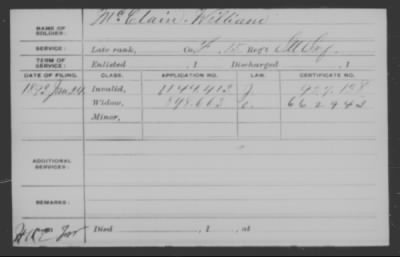 NAME OF SOLDIER: McClain, William
SERVICE: Late rank, Co. F, 15 Reg't Ill Inf.
TERM OF SERVICE: Enlisted , 1 Discharged , 1
DATE OF FILING. CLASS. APPLICATION NO. LAW. CERTIFICATE NO.
1892 Jan. Invalid,
Widow, 662943
Minor,
ADDITIONAL SERVICES:
REMARKS:
Died , 1 , at